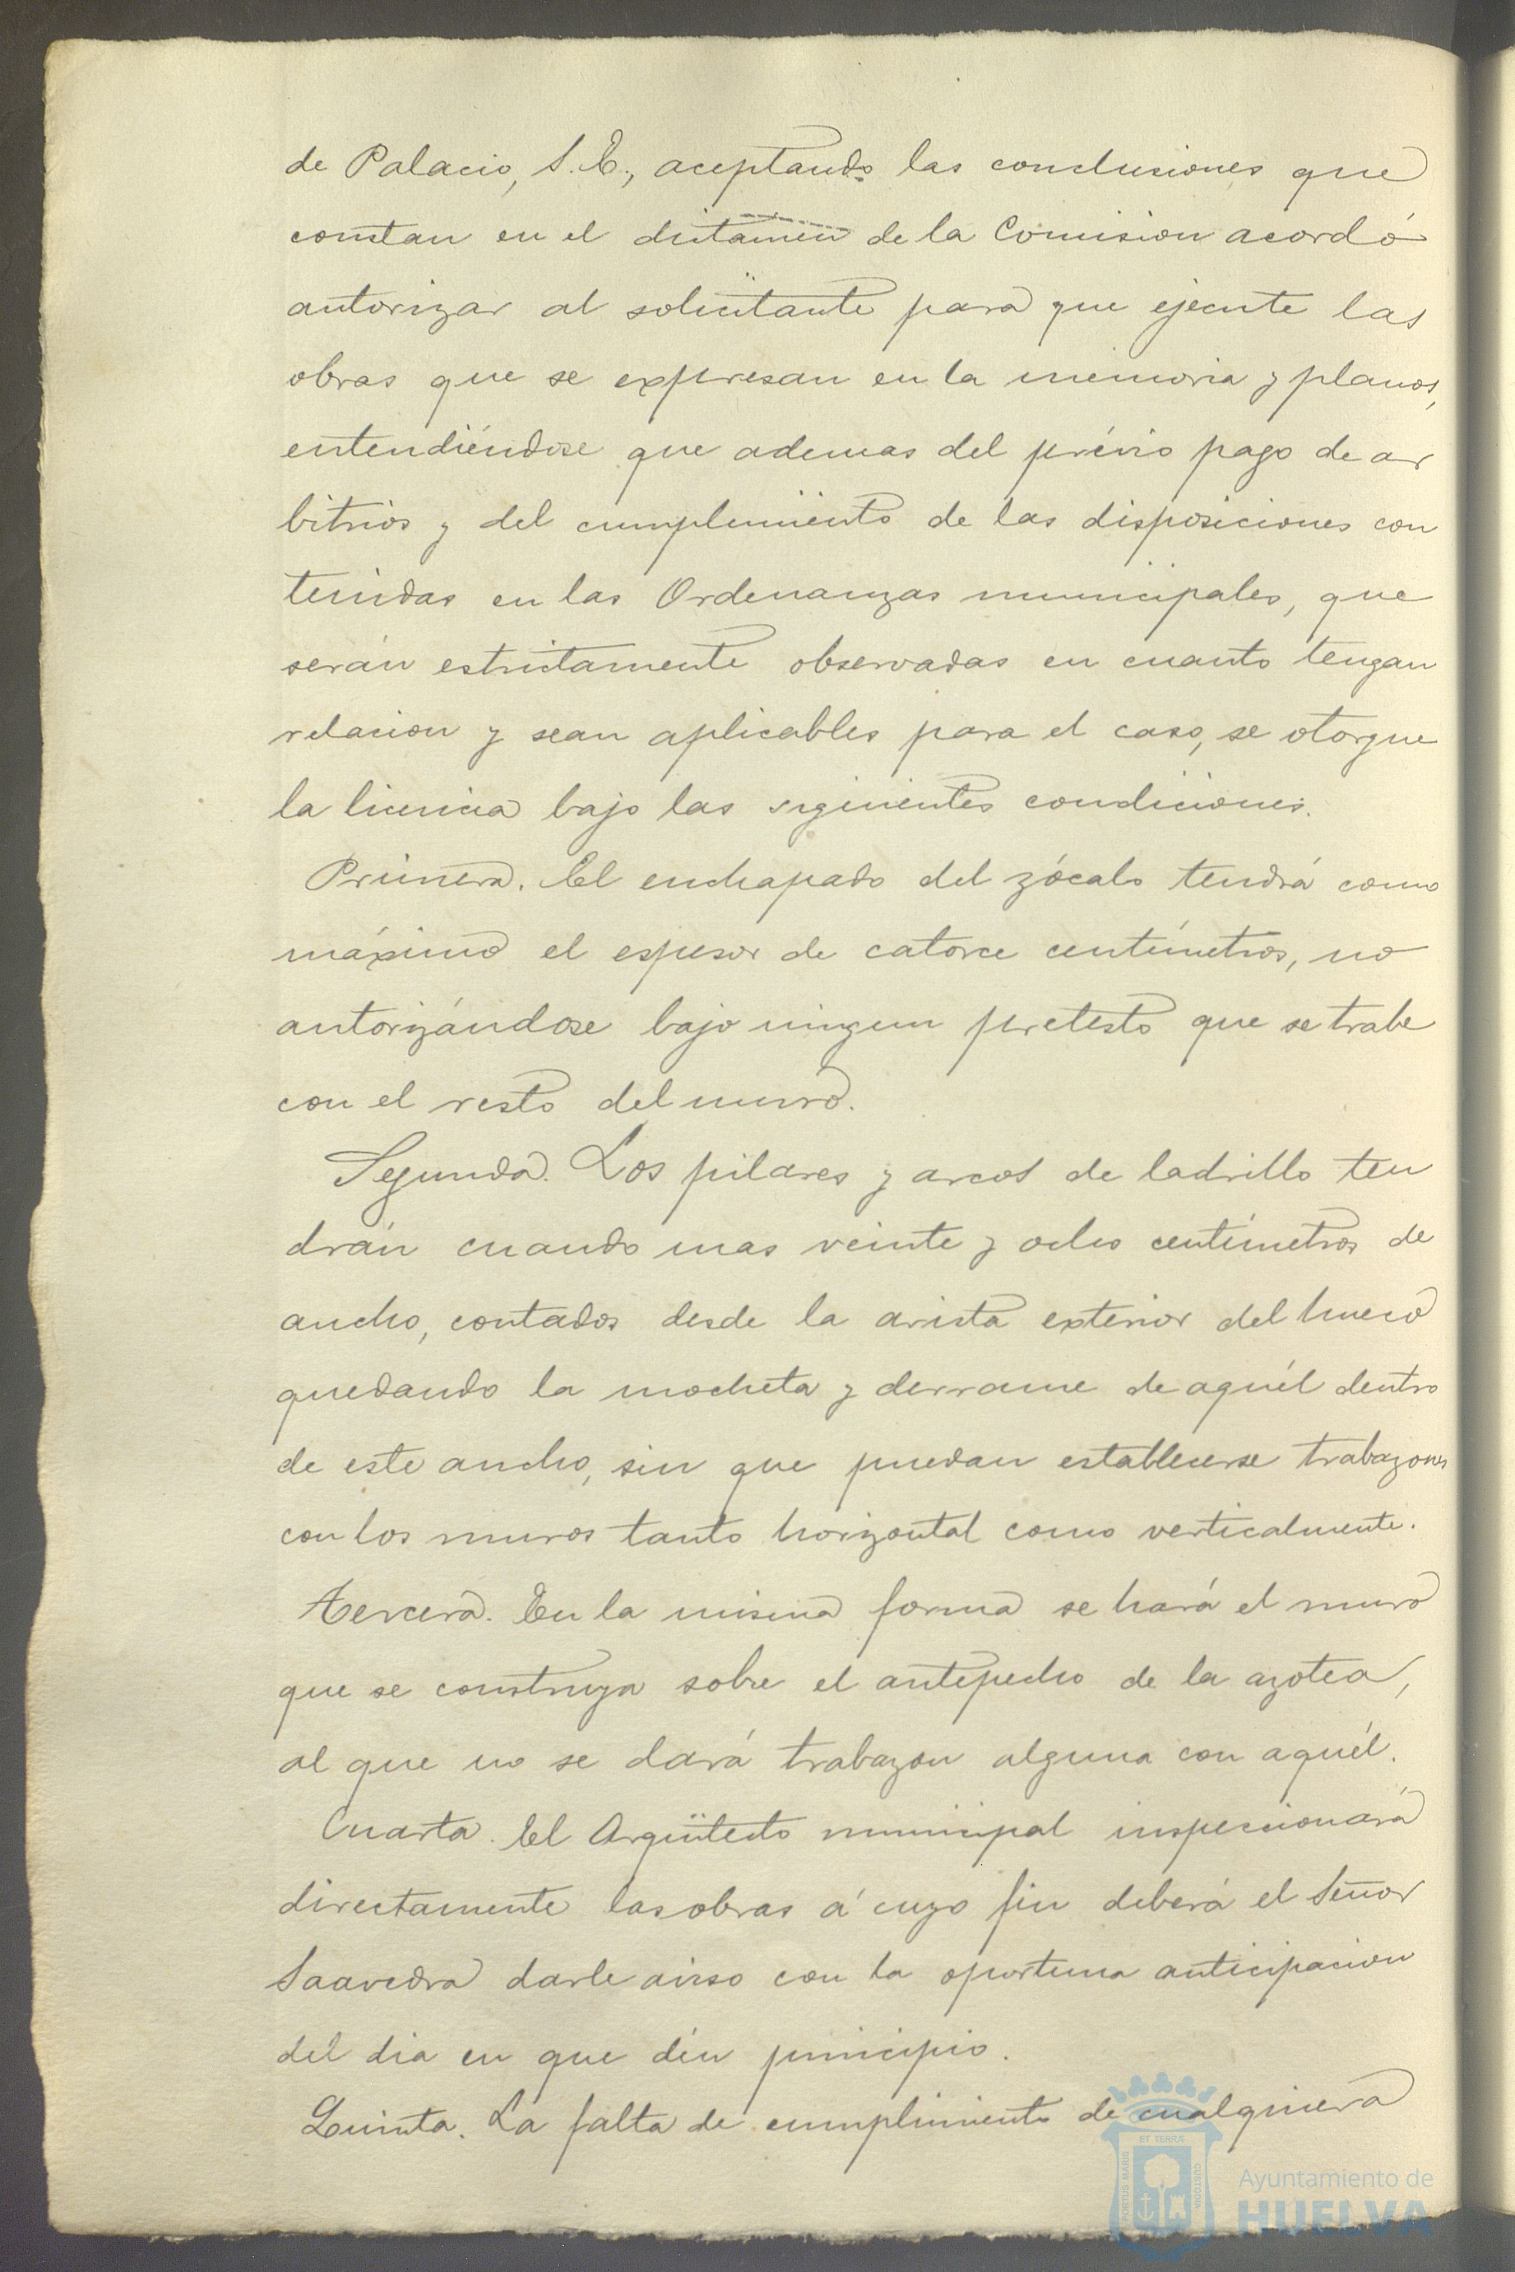 de Palacio, S. E., aceptando las conclusiones que
constan en el dictamen de la Comision acordó
autorizar al solicitante para que ejecute las
obras que se expresan en la memoria y planos,
entendiéndose que ademas del prévio pago de ar
bitrios y del cumplimiento de las disposiciones con
tenidas en las Ordenanzas municipales, que
serán estrictamente observadas en cuanto tengan
relacion y sean aplicables para el caso, se otorgue
la licencia bajo las siguientes condiciones.
Primera. El enchapado del zócalo tendrá como
máximo el espesor de catorce centímetros, no
autorizándose bajo ningun pretesto que se trabe
con el resto del muro.
Segunda. Los pilares y arcos de ladrillo ten
drán cuando mas veinte y ocho centímetros de
ancho, contados desde la arista exterior del hueco
quedando la mocheta y derrame de aquél dentro
de este ancho, sin que puedan establecerse trabazones
con los muros tanto horizontal como verticalmente.
Tercera. En la misma forma se hará el muro
que se construya sobre el antepecho de la azotea,
al que no se dará trabazon alguna con aquél.
Cuarta. El Arquitecto municipal inspeccionará
directamente las obras á cuyo fin deberá el Señor
Saavedra darle aviso con la oportuna anticipacion
del dia en que dén principio.
Quinta. La falta de cumplimiento de cualquiera
PORTUS MARIS
ET TERRÆ
CUSTODIA
Ayuntamiento de
HUELVA